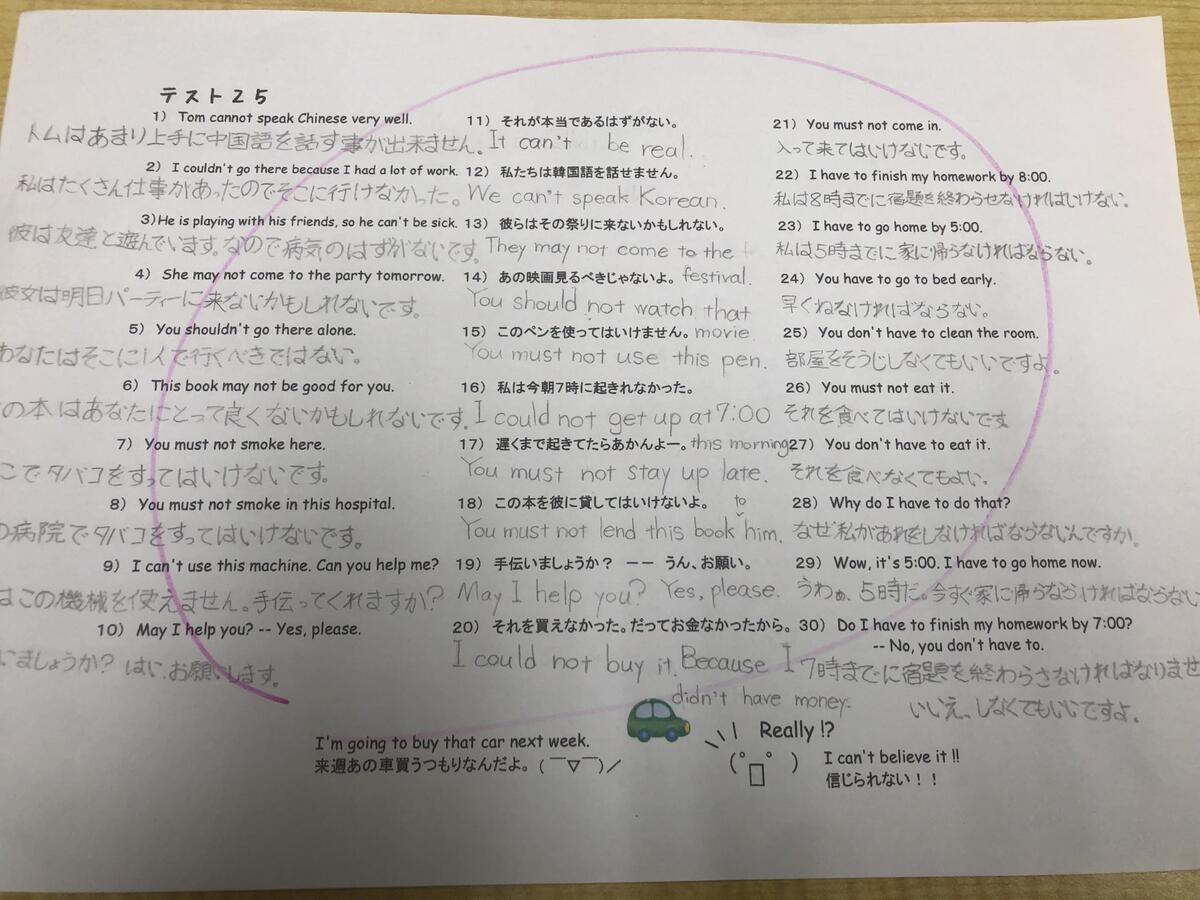 テスト25
1) Tom cannot speak Chinese very well.
トムはあまり上手に中国語を話す事が出来ません。
2) I couldn't go there because I had a lot of work.
私はたくさん仕事があったのでそこに行けなかった。
3) He is playing with his friends, so he can't be sick.
彼は友達と遊んでいます。なので病気のはずがないです。
4) She may not come to the party tomorrow.
彼女は明日パーティーに来ないかもしれないです。
5) You shouldn't go there alone.
あなたはそこに1人で行くべきではない。
6) This book may not be good for you.
の本はあなたにとって良くないかもしれないです。
7) You must not smoke here.
こでタバコをすってはいけないです。
8) You must not smoke in this hospital.
の病院でタバコをすってはいけないです。
9) I can't use this machine. Can you help me?
はこの機械を使えません。手伝ってくれますか?
10) May I help you? -- Yes, please.
いましょうか? はい、お願いします。
11) それが本当であるはずがない。
It can't be real.
12) 私たちは韓国語を話せません。
We can't speak Korean.
13) 彼らはその祭りに来ないかもしれない。
They may not come to the
festival.
14) あの映画見るべきじゃないよ。
You should not watch that
movie.
15) このペンを使ってはいけません。
You must not use this pen.
16) 私は今朝7時に起きれなかった。
I could not get up at 7:00
this morning
17) 遅くまで起きてたらあかんよー。
You must not stay up late.
18) この本を彼に貸してはいけないよ。
to
You must not lend this book him.
19) 手伝いましょうか? -- うん、お願い。
May I help you? Yes, please.
20) それを買えなかった。だってお金なかったから。
I could not buy it. Because I
didn't have money.
21) You must not come in.
入って来てはいけないです。
22) I have to finish my homework by 8:00.
私は8時までに宿題を終わらせなければいけない。
23) I have to go home by 5:00.
私は5時までに家に帰らなければならない。
24) You have to go to bed early.
早くねなければならない。
25) You don't have to clean the room.
部屋をそうじしなくてもいいですよ。
26) You must not eat it.
それを食べてはいけないです
27) You don't have to eat it.
それを食べなくてもよい。
28) Why do I have to do that?
なぜ私があれをしなければならないんですか。
29) Wow, it's 5:00. I have to go home now.
うわぁ、5時だ。今すぐ家に帰らならければならない
30) Do I have to finish my homework by 7:00?
-- No, you don't have to.
7時までに宿題を終わらさなければなりませ
いいえ、しなくてもいいですよ。
I'm going to buy that car next week.
来週あの車買うつもりなんだよ。(￣▽￣)／
Really!?
I can't believe it!!
信じられない！！